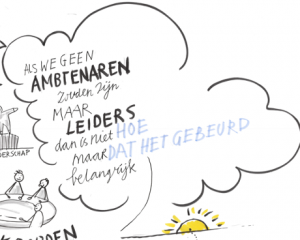 ALS WE GEEN
AMBTENAREN
zouden zijn
MAAR
LEIDERS
dan is niet HOE
maar DAT HET GEBEURD
belangrijk
DERSCHAP